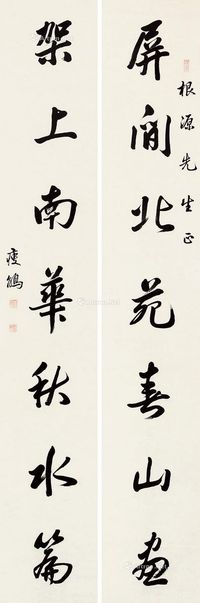 根源先生正
屏间北苑春山画
架上南華秋水篇
瘦鶴